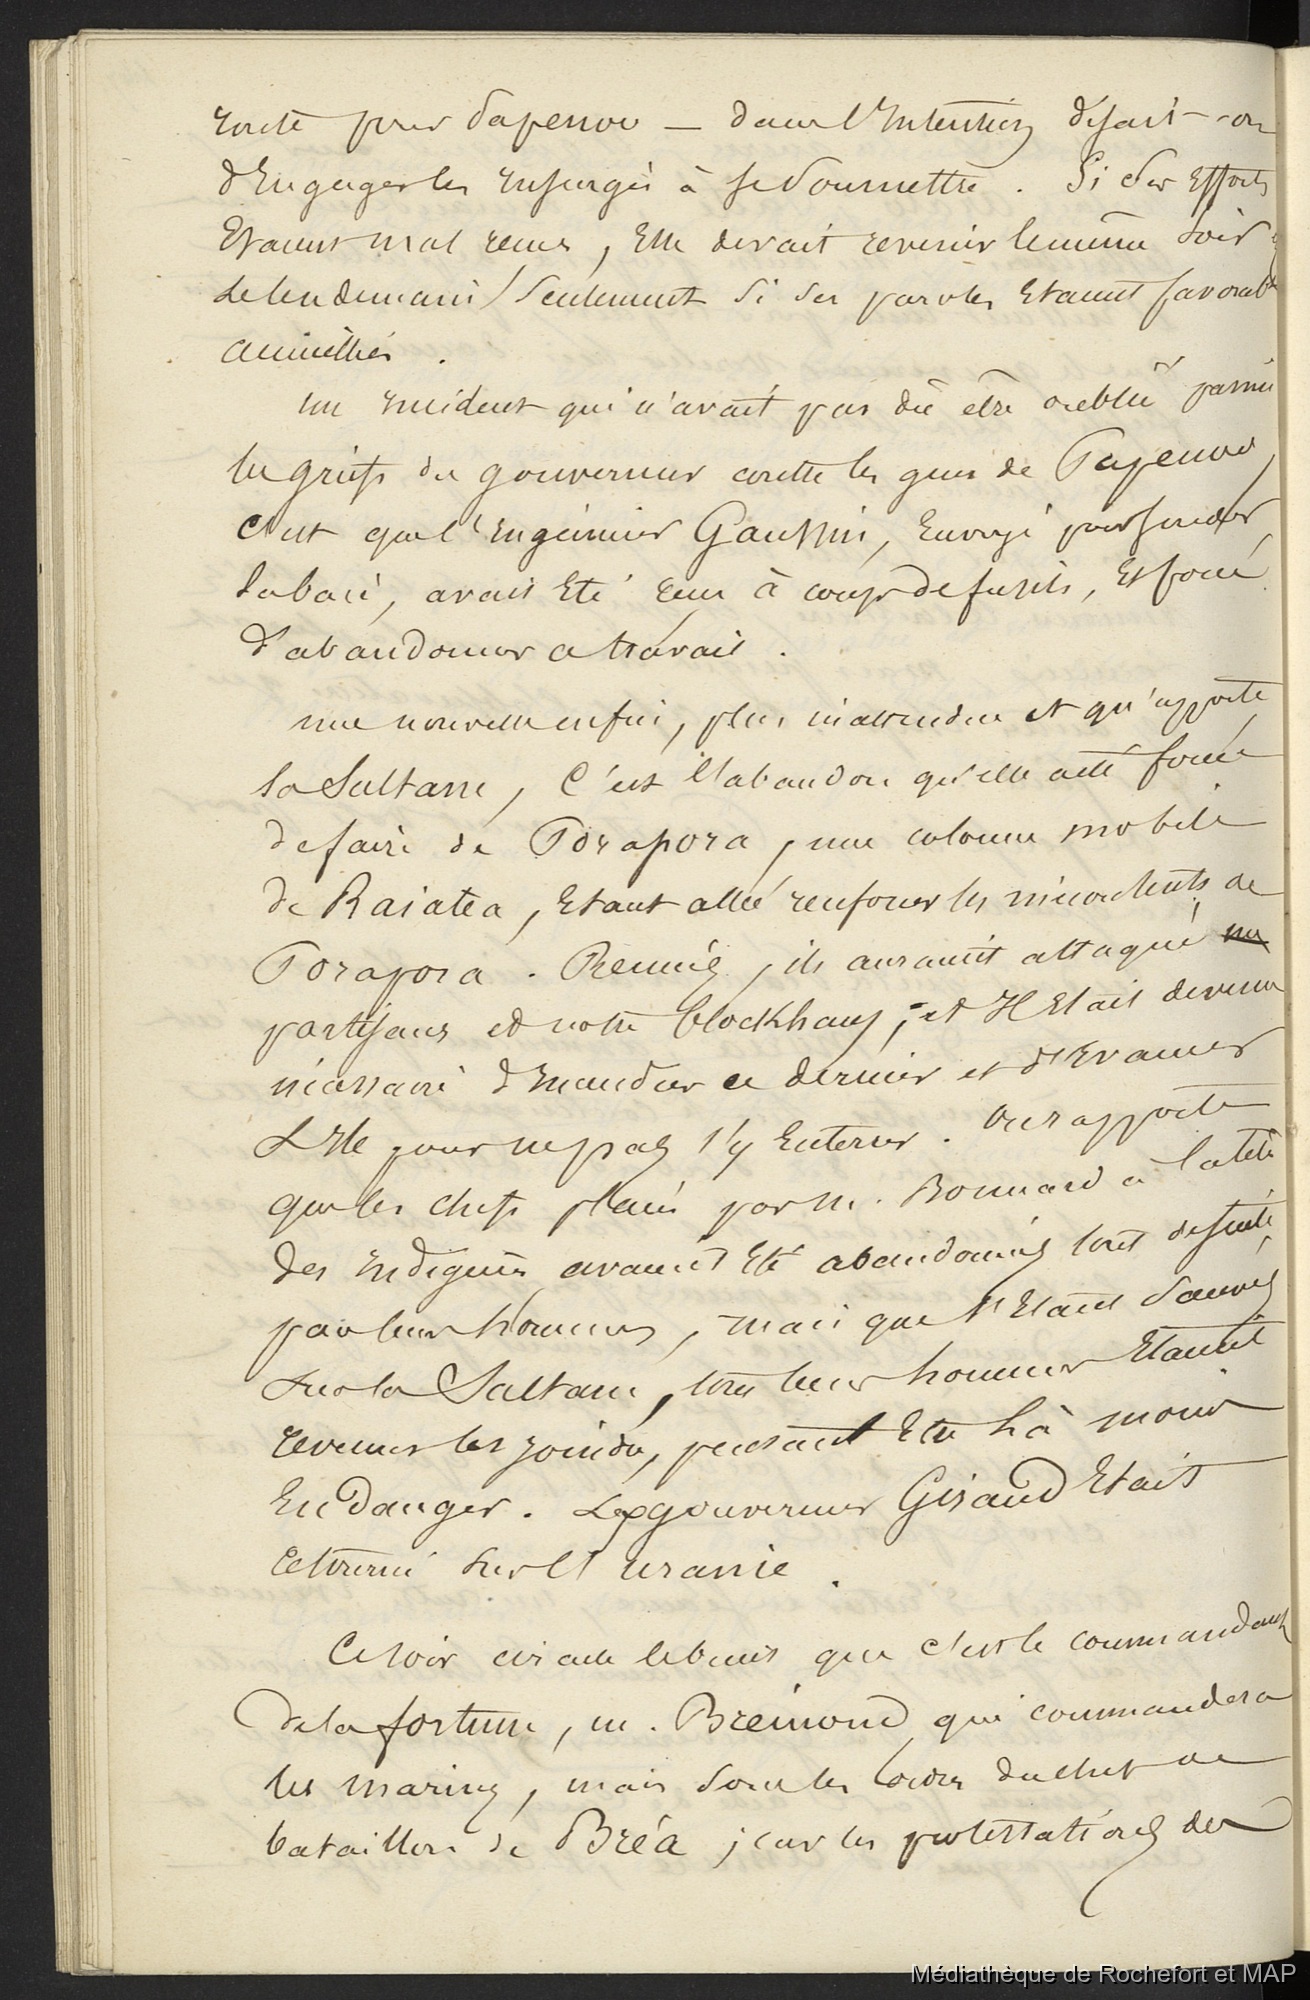 route pour Papenoo — dans l'Intention disait-on
d'Engager les insurgés à se soumettre. Si ses efforts
Etaient mal reçus, Elle devait revenir le même soir
le lendemain seulement si ses paroles Etaient favorabt
accueillies.
un incident qui n'avait pas dû être oublié parmi
les griefs du gouverneur contre les gens de Papenoo,
c'est que l'ingénieur Gaussin, Envoyé pour sonder
la baie, avait Eté reçu à coups de fusils, et forcé
d'abandonner ce travail.
une nouvelle enfin, plus inattendue et qu'apporte
la Sultane, C'est l'abandon qu'elle a été forcée
de faire de Borapora, une colonne mobile
de Raiatea, Etant allée renforcer les mécontents de
Borapora. Réunis, ils auraient attaqué
partisans et notre blockhaus; et Il Etait devenu
nécessaire d'Evacuer ce dernier et d'Evacuer
L'Ile pour ne pas s'y Enterrer. On rapporte
que les chefs placés par M. Bonnard à la tête
des indigènes avaient Eté abandonnés tout de suite
par leurs hommes, mais que s'Etant sauvés
sur la Sultane, tous leurs hommes Etaient
revenus les joindre, pensant Etre là moins
En danger. Le gouverneur Giraud Etait
retourné sur l'Uranie.
Ce soir circule le bruit que c'est le commandant
de la fortune, M. Brémond qui commandera
les marins, mais sous les ordres du chef de
bataillon de Bréa; car les protestations des